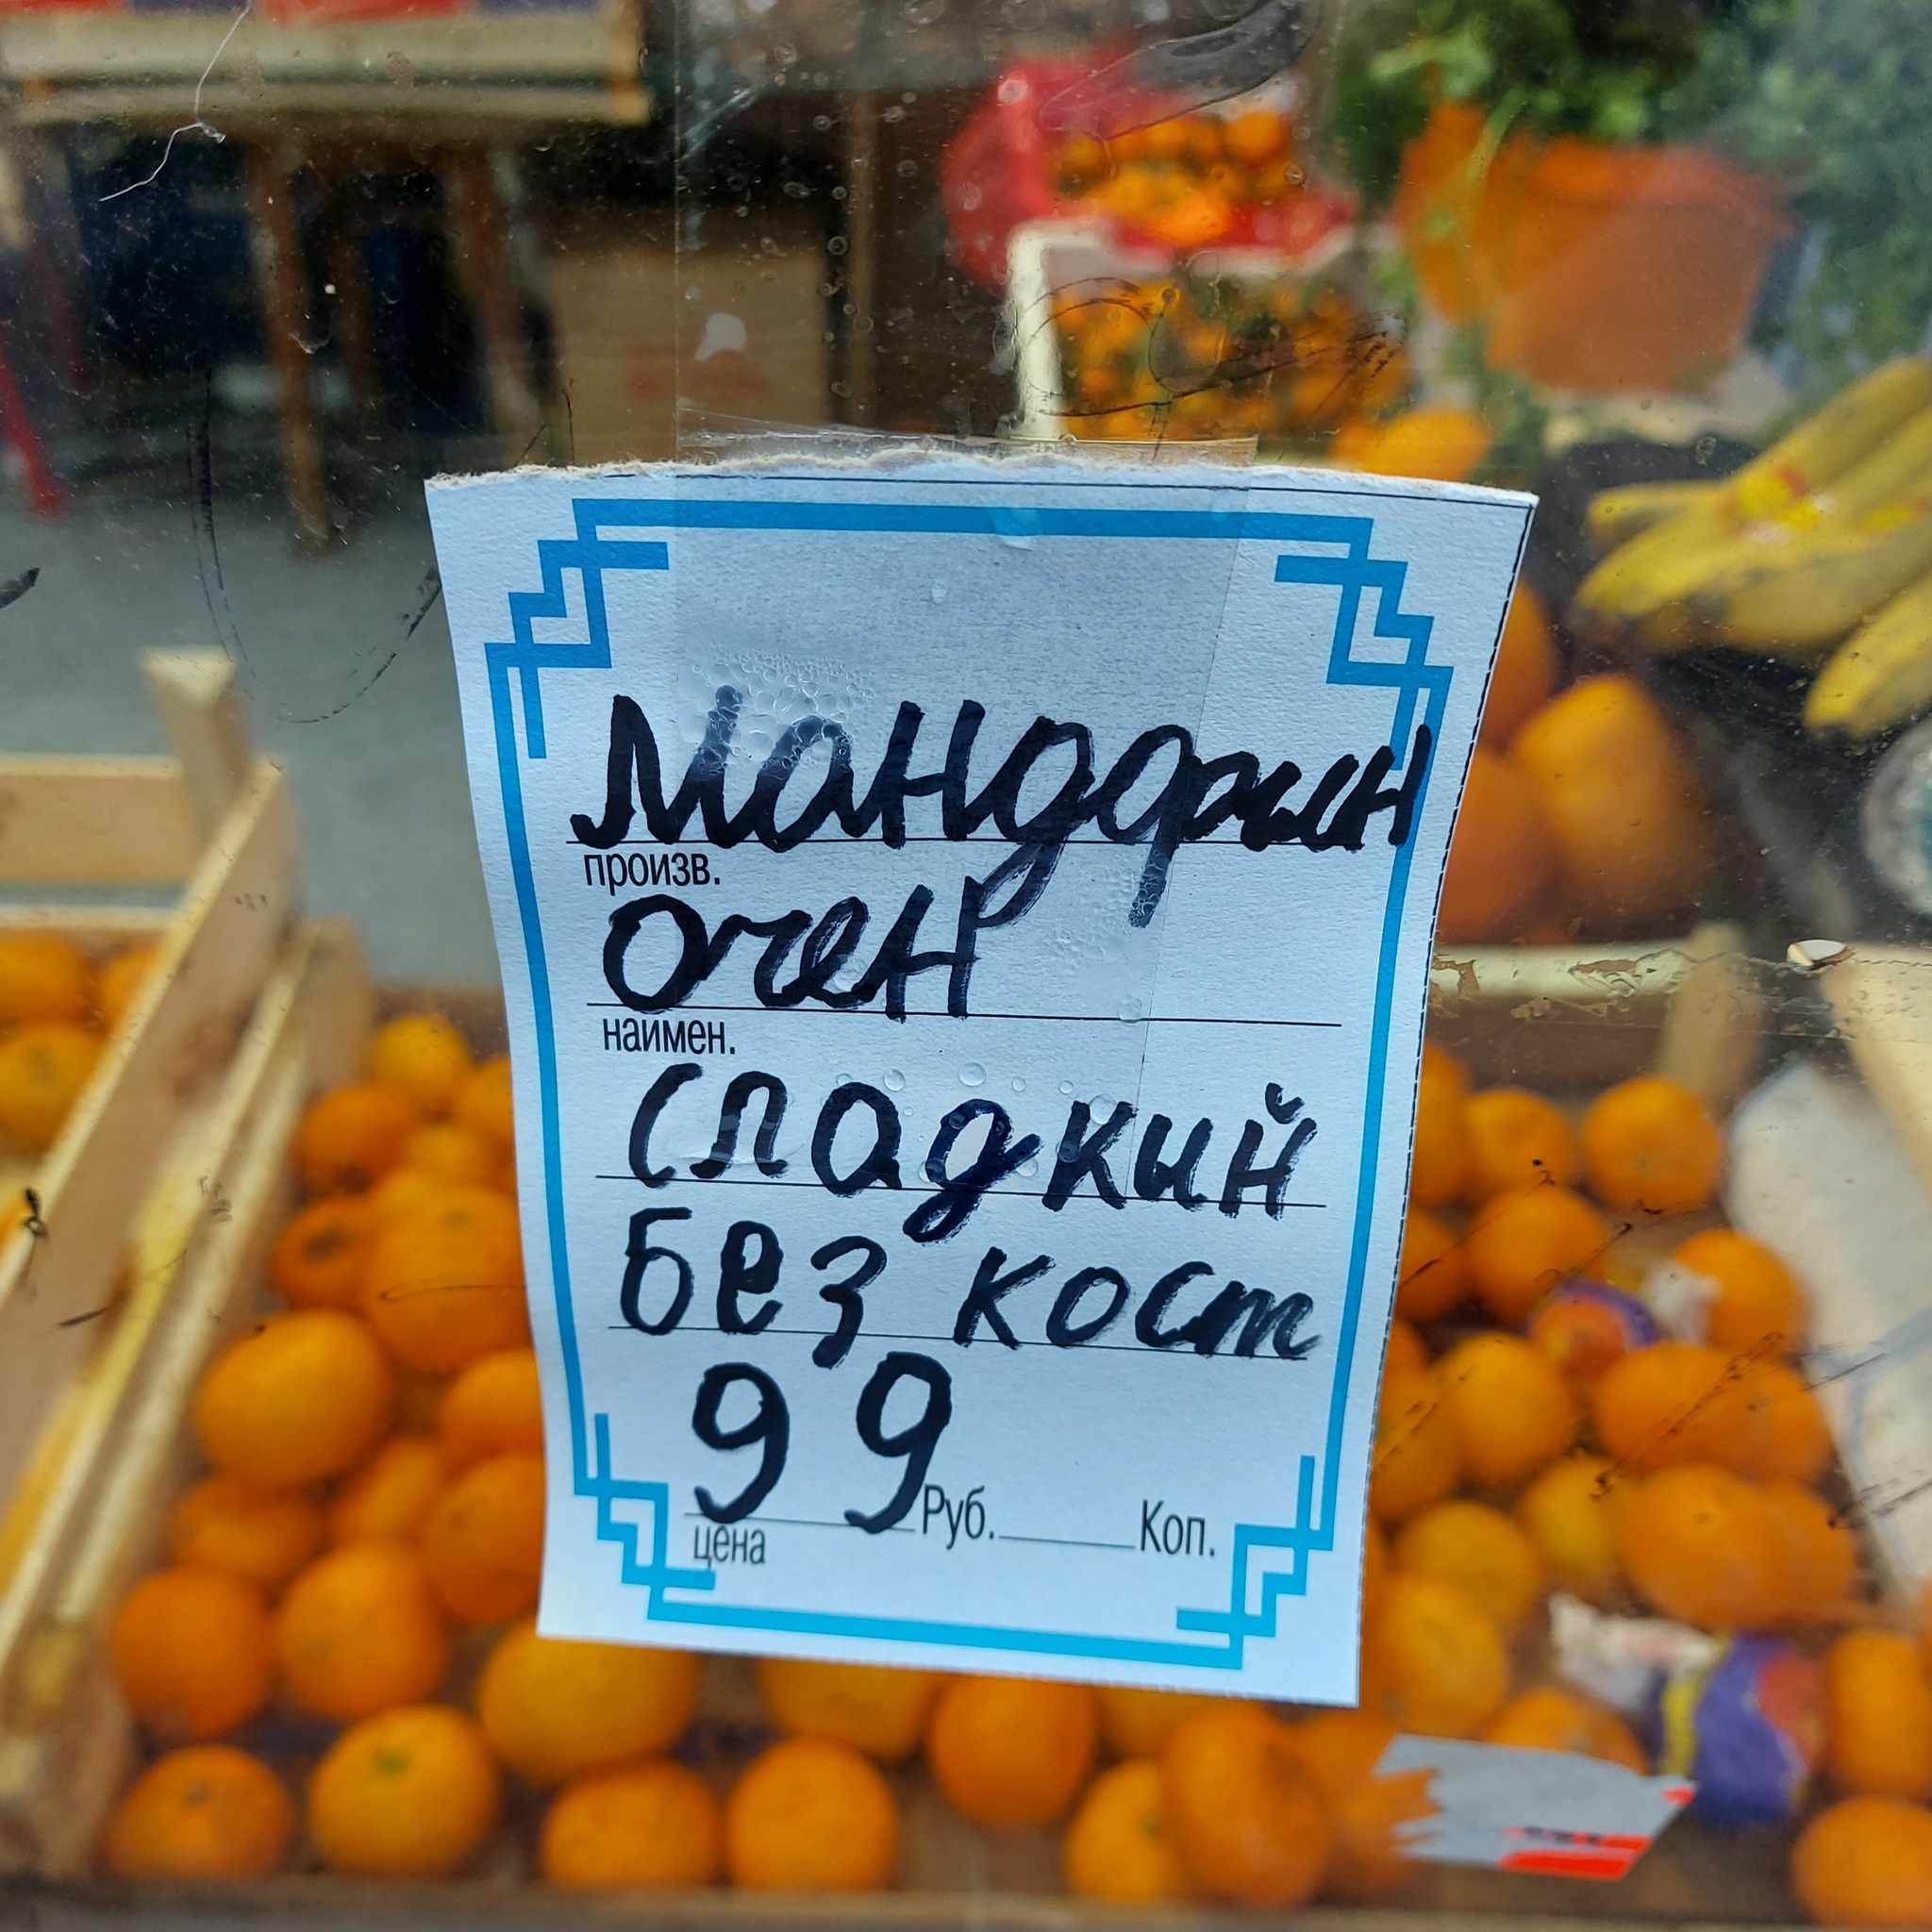 Мандарин
произв.
Очен
наимен.
сладкий
Без кост
99 Руб. Коп.
цена